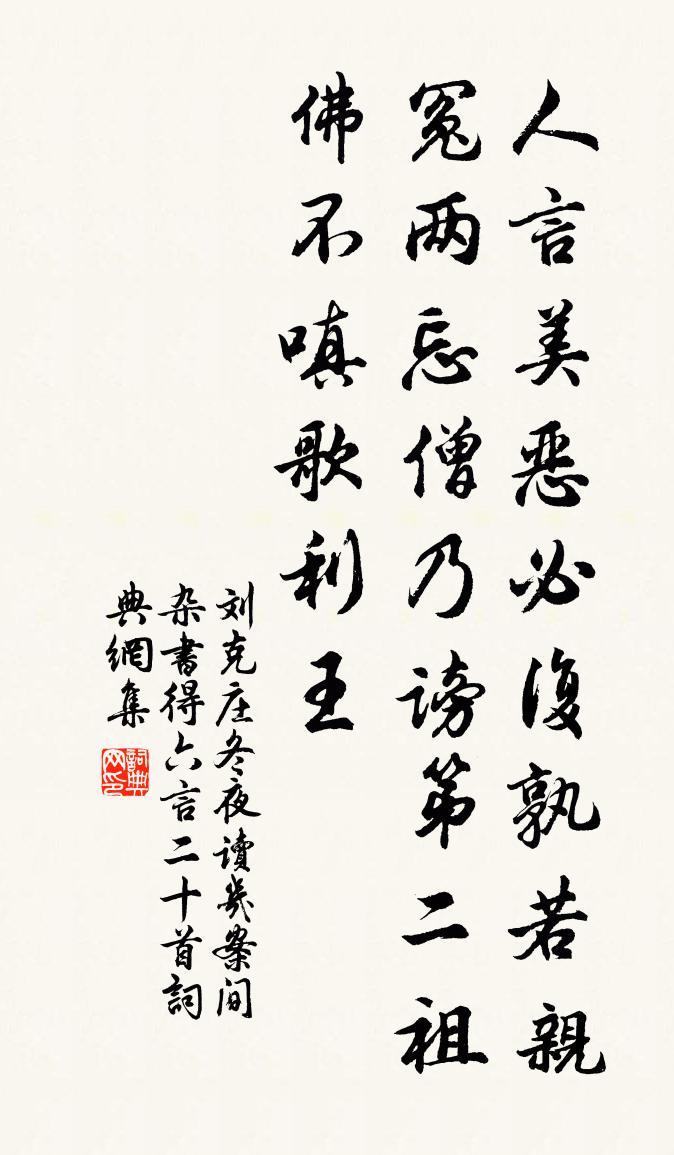 人言美恶必復孰若親
冤两忘僧乃谤第二祖
佛不嗔歌利王
刘克庄冬夜讀几案间
杂書得六言二十首詞
典網集
詞典网印